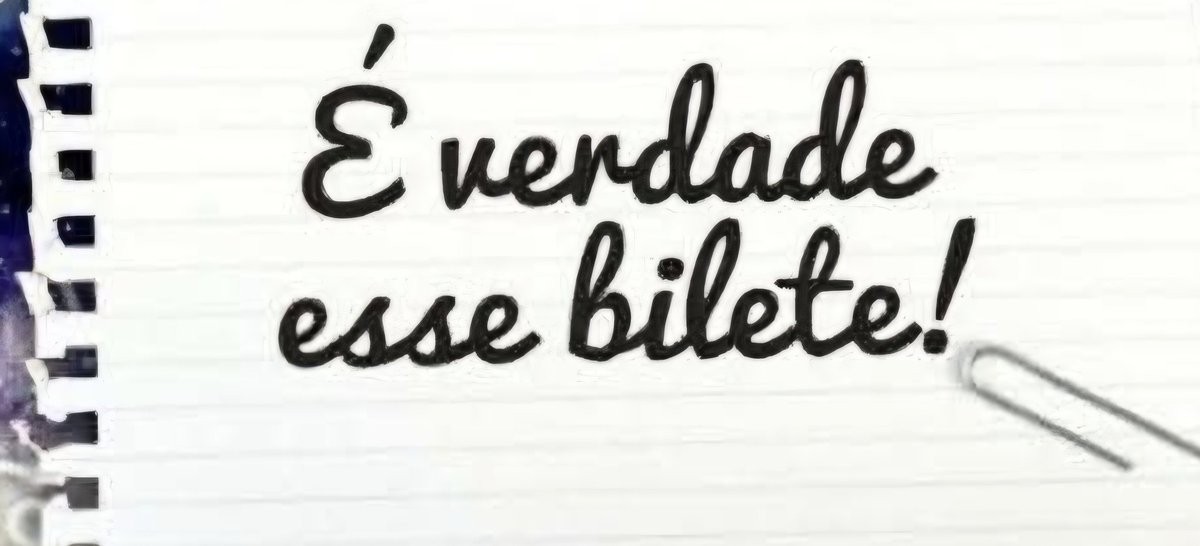 É verdade
esse bilete!